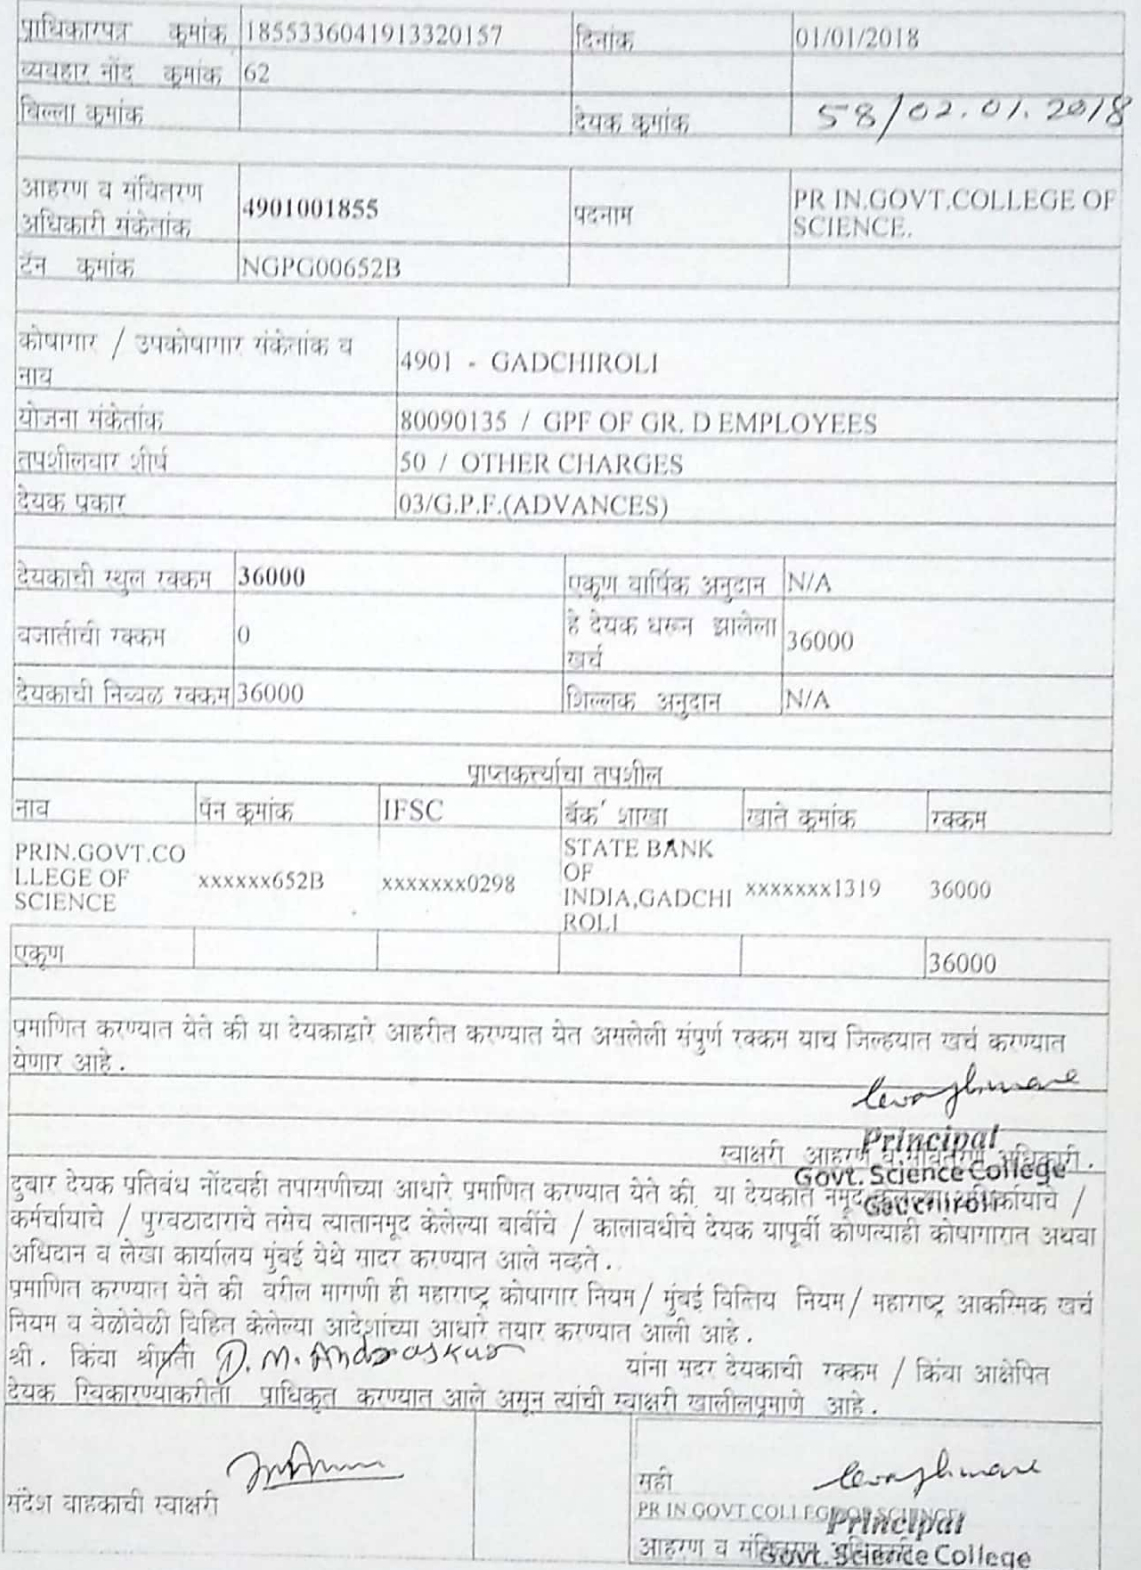 प्राधिकारपत्र क्रमांक 1855336041913320157 दिनांक 01/01/2018
व्यवहार नोंद क्रमांक 62
बिल्ला क्रमांक देयक क्रमांक 58/02.01.2018
आहरण व संवितरण
अधिकारी संकेतांक 4901001855 पदनाम PR IN.GOVT.COLLEGE OF
SCIENCE.
टॅन क्रमांक NGPG00652B
कोषागार / उपकोषागार संकेतांक व
नाव 4901 - GADCHIROLI
योजना संकेतांक 80090135 / GPF OF GR. D EMPLOYEES
तपशीलवार शीर्ष 50 / OTHER CHARGES
देयक प्रकार 03/G.P.F.(ADVANCES)
देयकाची स्थुल रक्कम 36000 एकूण वार्षिक अनुदान N/A
वजातीची रक्कम 0 हे देयक धरून झालेला
खर्च 36000
देयकाची निव्वळ रक्कम 36000 शिल्लक अनुदान N/A
प्राप्तकर्त्याचा तपशील
नाव पॅन क्रमांक IFSC बॅक' शाखा खाते क्रमांक रक्कम
PRIN.GOVT.CO
LLEGE OF
SCIENCE xxxxxx652B xxxxxxx0298 STATE BANK
OF
INDIA,GADCHI
ROLI xxxxxxx1319 36000
एकूण 36000
प्रमाणित करण्यात येते की या देयकाद्वारे आहरीत करण्यात येत असलेली संपुर्ण रक्कम याच जिल्हयात खर्च करण्यात
येणार आहे.
Principal
स्वाक्षरी आहरण व संवितरण अधिकारी.
Govt. Science College
दुबार देयक प्रतिबंध नोंदवही तपासणीच्या आधारे प्रमाणित करण्यात येते की या देयकात नमूद /
Gadchiroli
कर्मचार्याचे / पुरवठादाराचे तसेच त्यातानमूद केलेल्या बाबींचे / कालावधीचे देयक यापूर्वी कोणत्याही कोषागारात अथवा
अधिदान व लेखा कार्यालय मुंबई येथे सादर करण्यात आले नव्हते.
प्रमाणित करण्यात येते की वरील मागणी ही महाराष्ट्र कोषागार नियम/ मुंबई वित्तिय नियम/ महाराष्ट्र आकस्मिक खर्च
नियम व वेळोवेळी विहित केलेल्या आदेशांच्या आधारे तयार करण्यात आली आहे.
श्री. किंवा श्रीमती D. M. यांना सदर देयकाची रक्कम / किंवा आक्षेपित
देयक स्विकारण्याकरीता प्राधिकृत करण्यात आले असून त्यांची स्वाक्षरी खालीलप्रमाणे आहे.
संदेश वाहकाची स्वाक्षरी
सही
PR IN.GOVT.COLLEGE OF SCIENCE.
Principal
आहरण व संवितरण अधिकारी
Govt. Science College